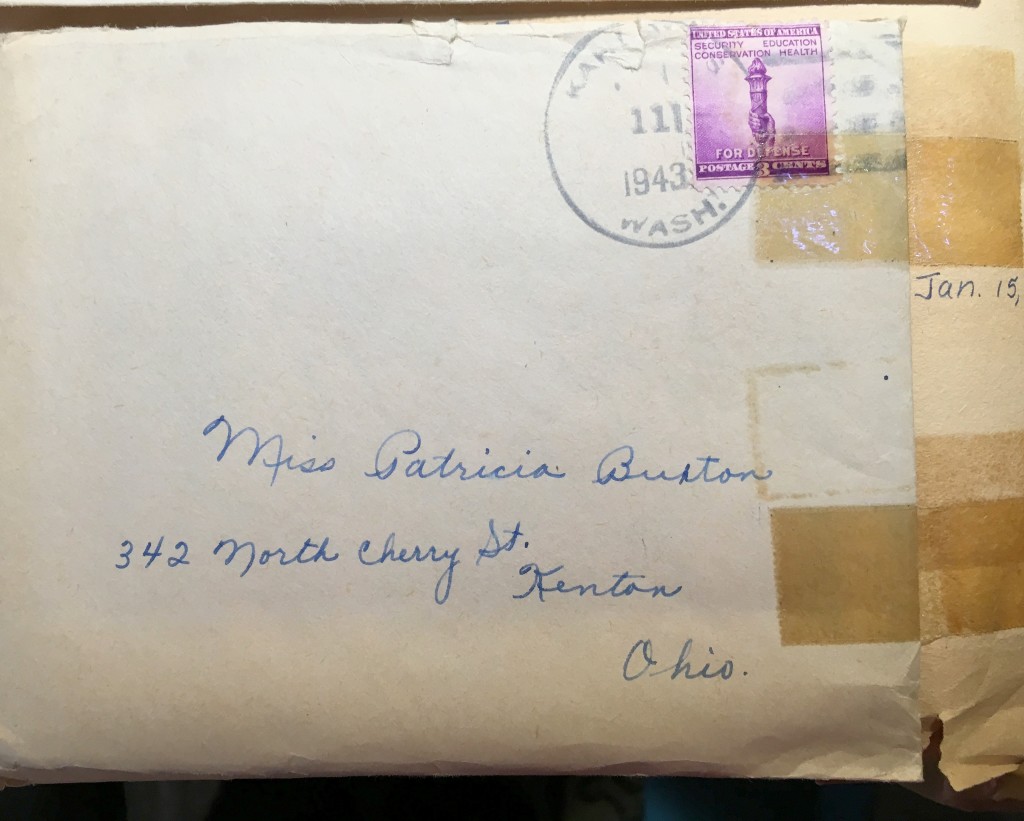 UNITED STATES OF AMERICA
SECURITY EDUCATION
CONSERVATION HEALTH
FOR DEFENSE
POSTAGE 3 CENTS
111
1943
WASH.
Jan. 15,
Miss Patricia Buxton
342 North Cherry St.
Kenton
Ohio.